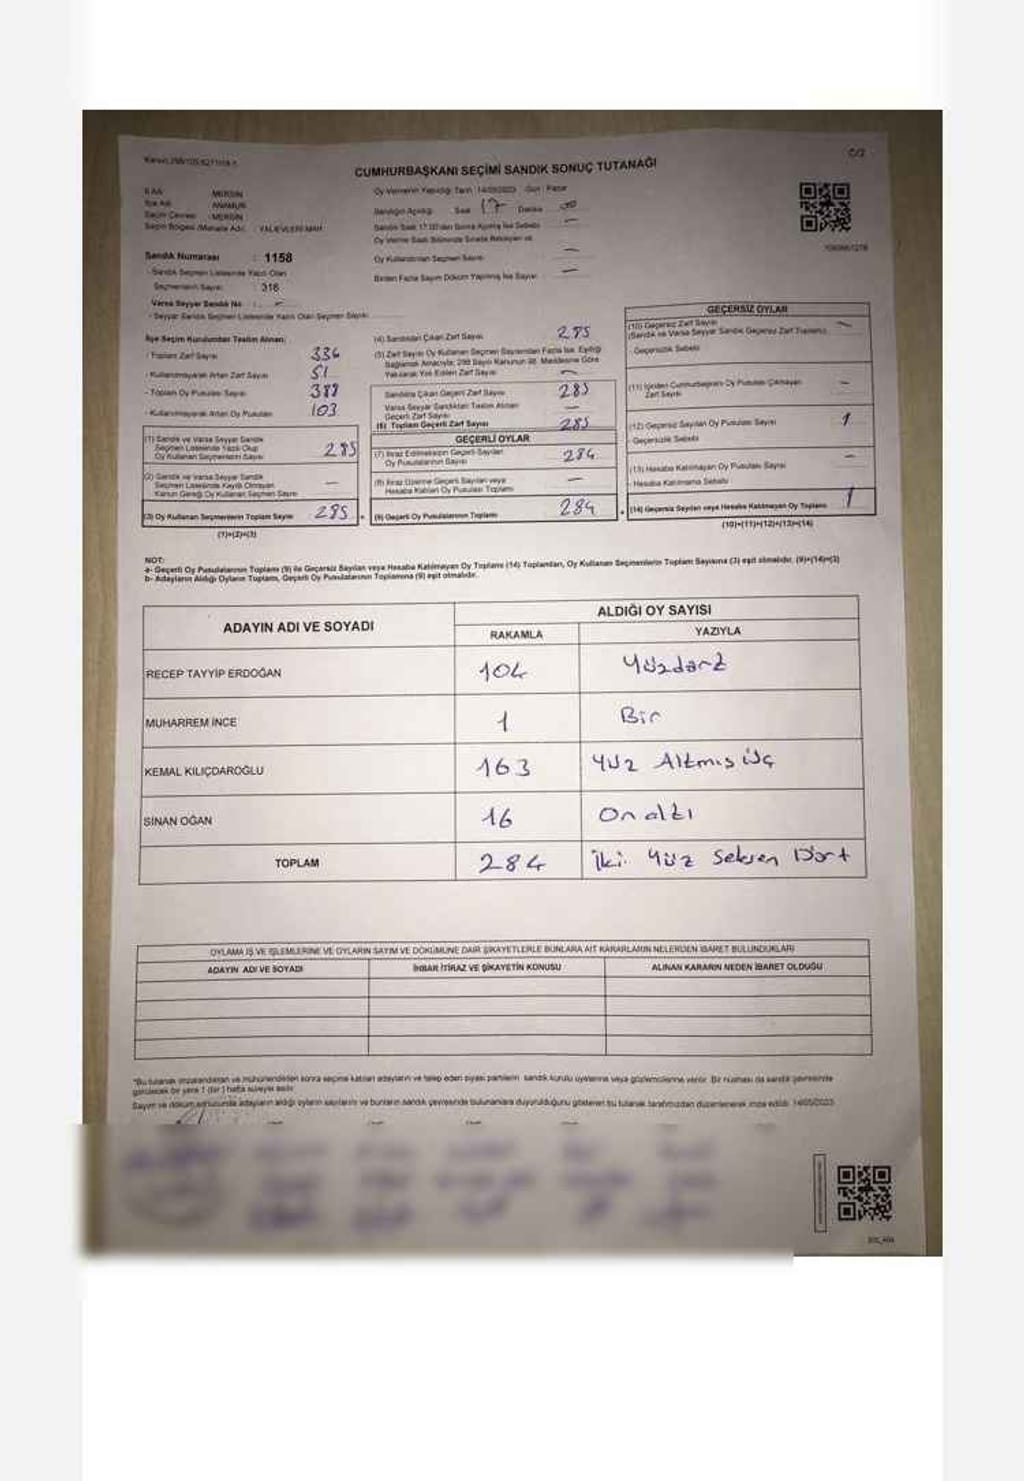 C/2
CUMHURBAŞKANI SEÇİMİ SANDIK SONUÇ TUTANAĞI
İl Adı : MERSİN
İlçe Adı : ANAMUR
Seçim Çevresi : MERSİN
Seçim Bölgesi /Mahalle Adı : YALIEVLERİ MAH.
Sandık Numarası : 1158
- Sandık Seçmen Listesinde Yazılı Olan
Seçmenlerin Sayısı : 316
Varsa Seyyar Sandık No : -
- Seyyar Sandık Seçmen Listesinde Yazılı Olan Seçmen Sayısı
Oy Vermenin Yapıldığı Tarih : 14/05/2023 Gün : Pazar
Sandığın Açıldığı Saat 17 Dakika 00
Sandık Saat 17.00'den Sonra Açılmış İse Sebebi -
Oy Verme Saati Bitiminde Sırada Bekleyen ve
Oy Kullandırılan Seçmen Sayısı -
Birden Fazla Sayım Döküm Yapılmış İse Sayısı -
İlçe Seçim Kurulundan Teslim Alınan;
- Toplam Zarf Sayısı 336
- Kullanılmayarak Artan Zarf Sayısı 51
- Toplam Oy Pusulası Sayısı 388
- Kullanılmayarak Artan Oy Pusulası 103
(1) Sandık ve Varsa Seyyar Sandık
Seçmen Listesinde Yazılı Olup
Oy Kullanan Seçmenlerin Sayısı 285
(2) Sandık ve Varsa Seyyar Sandık
Seçmen Listesinde Kayıtlı Olmayan
Kanun Gereği Oy Kullanan Seçmen Sayısı -
(3) Oy Kullanan Seçmenlerin Toplam Sayısı 285
(1)+(2)=(3)
(4) Sandıktan Çıkan Zarf Sayısı 285
(5) Zarf Sayısı Oy Kullanan Seçmen Sayısından Fazla İse, Eşitliği
Sağlamak Amacıyla; 298 Sayılı Kanunun 98. Maddesine Göre
Yakılarak Yok Edilen Zarf Sayısı -
Sandıkta Çıkan Geçerli Zarf Sayısı 285
Varsa Seyyar Sandıktan Teslim Alınan
Geçerli Zarf Sayısı -
(6) Toplam Geçerli Zarf Sayısı 285
GEÇERLİ OYLAR
(7) İtiraz Edilmeksizin Geçerli Sayılan
Oy Pusulalarının Sayısı 284
(8) İtiraz Üzerine Geçerli Sayılan veya
Hesaba Katılan Oy Pusulası Toplamı -
(9) Geçerli Oy Pusulalarının Toplamı 284
GEÇERSİZ OYLAR
(10) Geçersiz Zarf Sayısı -
(Sandık ve Varsa Seyyar Sandık Geçersiz Zarf Toplamı)
- Geçersizlik Sebebi
(11) İçinden Cumhurbaşkanı Oy Pusulası Çıkmayan
Zarf Sayısı -
(12) Geçersiz Sayılan Oy Pusulası Sayısı 1
- Geçersizlik Sebebi
(13) Hesaba Katılmayan Oy Pusulası Sayısı -
- Hesaba Katılmama Sebebi
(14) Geçersiz Sayılan veya Hesaba Katılmayan Oy Toplamı 1
(10)+(11)+(12)+(13)=(14)
NOT:
a- Geçerli Oy Pusulalarının Toplamı (9) ile Geçersiz Sayılan veya Hesaba Katılmayan Oy Toplamı (14) Toplamları, Oy Kullanan Seçmenlerin Toplam Sayısına (3) eşit olmalıdır. (9)+(14)=(3)
b- Adayların Aldığı Oyların Toplamı, Geçerli Oy Pusulalarının Toplamına (9) eşit olmalıdır.
ADAYIN ADI VE SOYADI
ALDIĞI OY SAYISI
RAKAMLA YAZIYLA
RECEP TAYYİP ERDOĞAN 104 Yüzdört
MUHARREM İNCE 1 Bir
KEMAL KILIÇDAROĞLU 163 Yüz Altmış üç
SİNAN OĞAN 16 On altı
TOPLAM 284 İki Yüz Seksen Dört
OYLAMA İŞ VE İŞLEMLERİNE VE OYLARIN SAYIM VE DÖKÜMÜNE DAİR ŞİKAYETLERLE BUNLARA AİT KARARLARIN NELERDEN İBARET BULUNDUKLARI
ADAYIN ADI VE SOYADI İHBAR İTİRAZ VE ŞİKAYETİN KONUSU ALINAN KARARIN NEDEN İBARET OLDUĞU
*Bu tutanak imzalandıktan ve mühürlendikten sonra seçime katılan adayların ve talep eden siyasi partilerin sandık kurulu üyelerine veya gözlemcilerine verilir. Bir nüshası da sandık çevresinde
görülecek bir yere 1 (bir) hafta süreyle asılır.
Sayım ve döküm sonucunda adayların aldığı oyların sayılarını ve bunların sandık çevresinde bulunanlara duyurulduğunu gösteren bu tutanak tarafımızdan düzenlenerek imza edildi. 14/05/2023